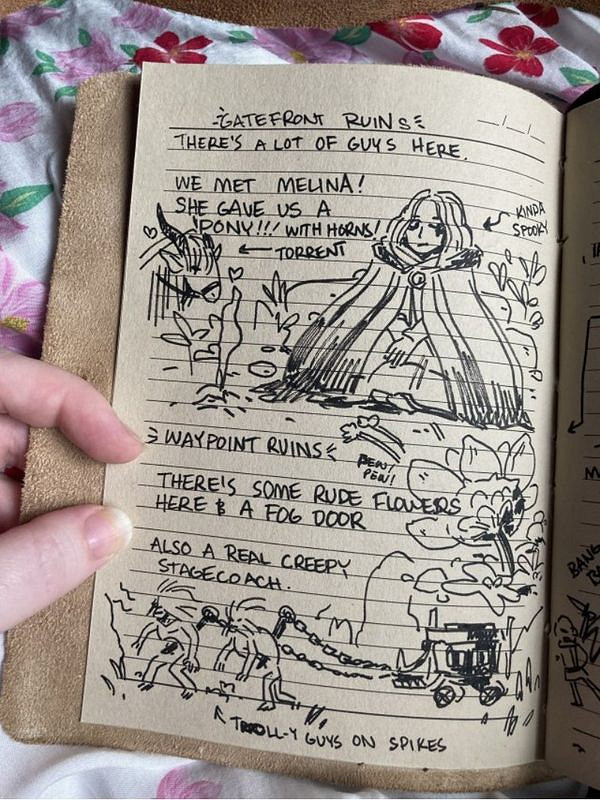 GATEFRONT RUINS
THERE'S A LOT OF GUYS HERE.
WE MET MELINA!
SHE GAVE US A
PONY!!! WITH HORNS!
KINDA
SPOOKY
TORRENT
WAYPOINT RUINS
PEW!
PEW!
THERE'S SOME RUDE FLOWERS
HERE & A FOG DOOR
ALSO A REAL CREEPY
STAGECOACH.
TROLL-Y GUYS ON SPIKES
BANG